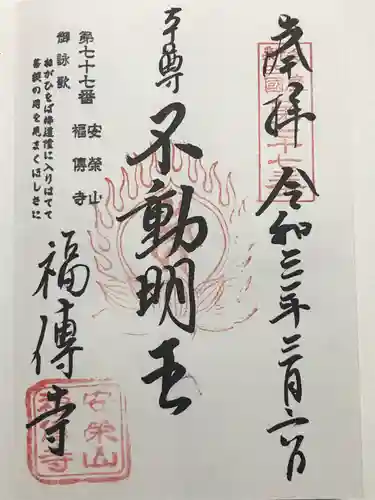 奉拝
令和三年三月六日
本尊
不動明王
第七十七番 安榮山 福傳寺
御詠歌
ねがひをば佛道陸に入りはてて
菩提の月を見まくほしさに
福傳寺
安栄山